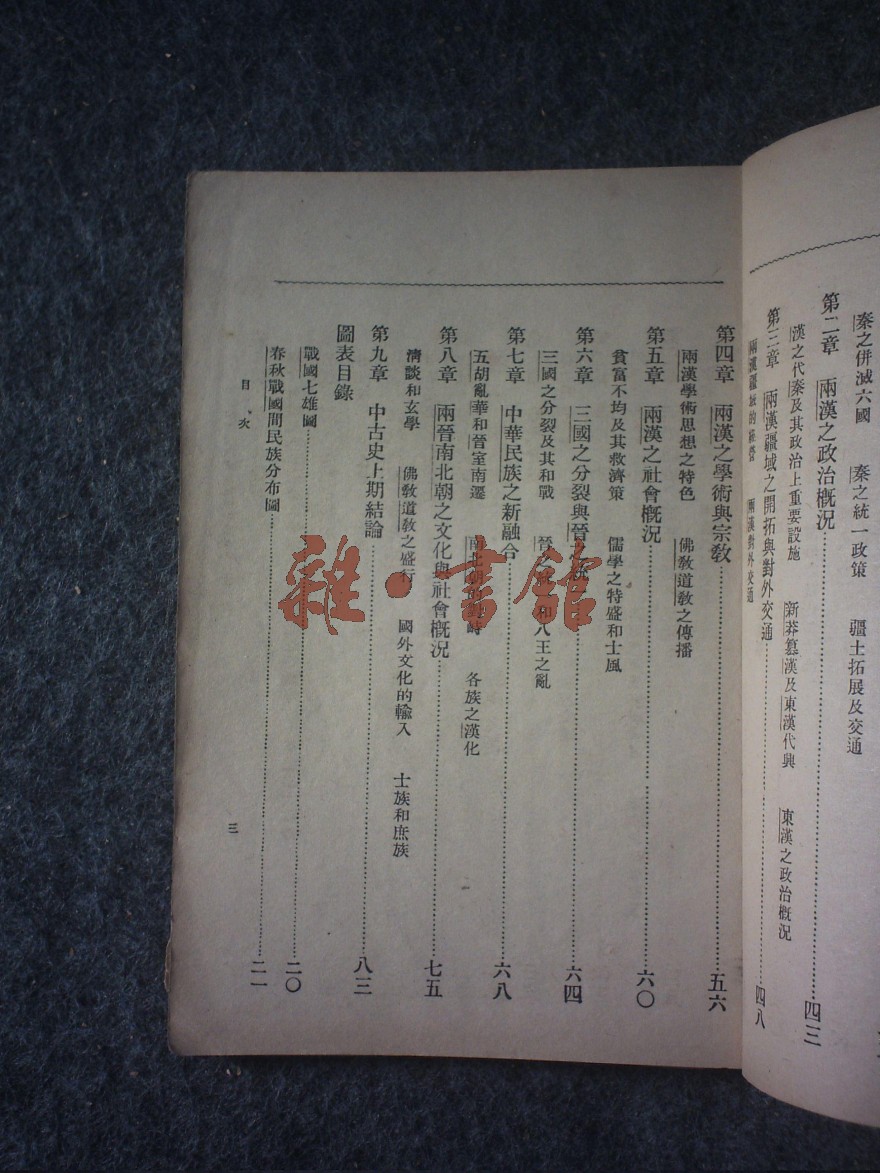 秦之併滅六國　秦之統一政策　疆土拓展及交通
第二章　兩漢之政治概況……四三
漢之代秦及其政治上重要設施　新莽篡漢及東漢代興　東漢之政治概況
第三章　兩漢疆域之開拓與對外交通……四八
兩漢疆域的經營　兩漢對外交通
第四章　兩漢之學術與宗教……五六
兩漢學術思想之特色　佛教道教之傳播
第五章　兩漢之社會概況……六〇
貧富不均及其救濟策　儒學之特盛和士風
第六章　三國之分裂與晉……六四
三國之分裂及其和戰　晉之　和八王之亂
第七章　中華民族之新融合……六八
五胡亂華和晉室南遷　南北朝　各族之漢化
第八章　兩晉南北朝之文化與社會概況……七五
清談和玄學　佛教道教之盛行　國外文化的輸入　士族和庶族
第九章　中古史上期結論……八三
圖表目錄
戰國七雄圖……二〇
春秋戰國間民族分布圖……二一
目次
三
雜·書館